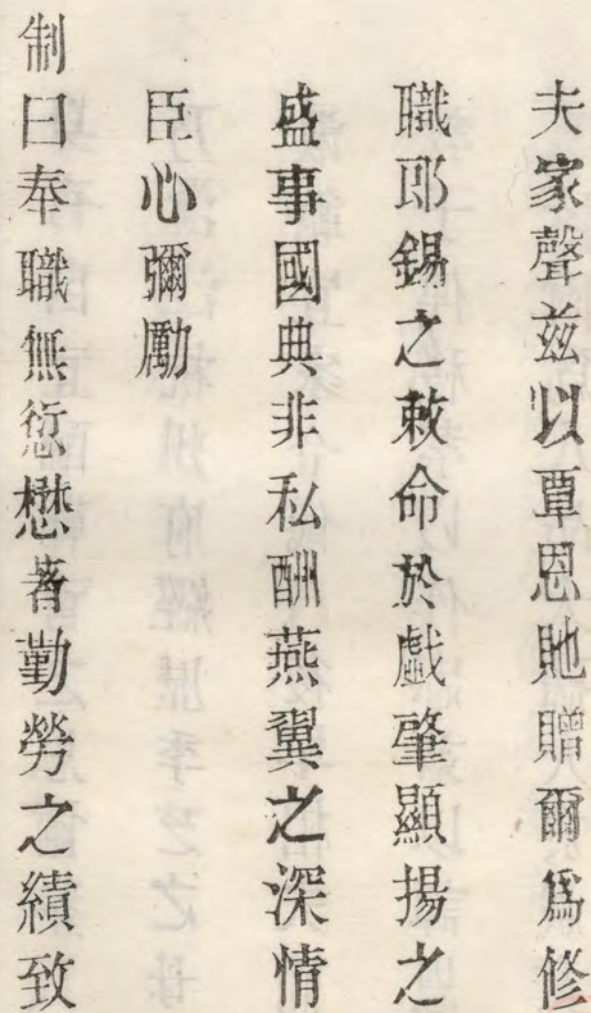 夫家聲兹以覃恩貤贈爾爲修
職郎錫之敕命於戲肇顯揚之
盛事國典非私酬燕翼之深情
臣心彌勵
制曰奉職無愆懋著勤勞之績致